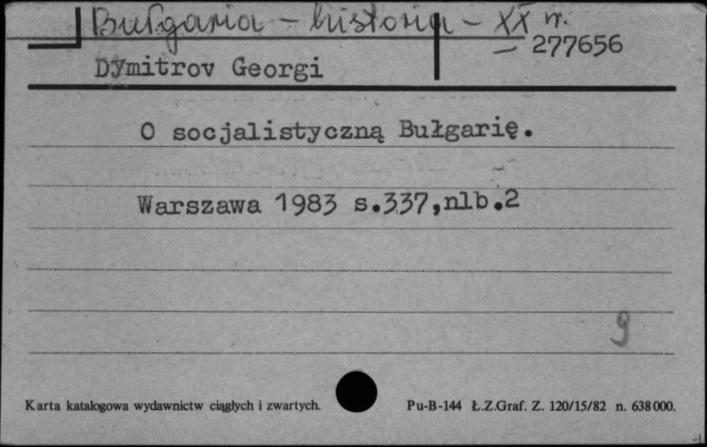 Bułgaria - historia - XX w.
277656
Dymitrov Georgi
O socjalistyczną Bułgarię.
Warszawa 1983 s.337,nlb.2
9
Karta katalogowa wydawnictw ciągłych i zwartych.
Pu-B-144 Ł.Z.Graf. Z. 120/15/82 n. 638000.